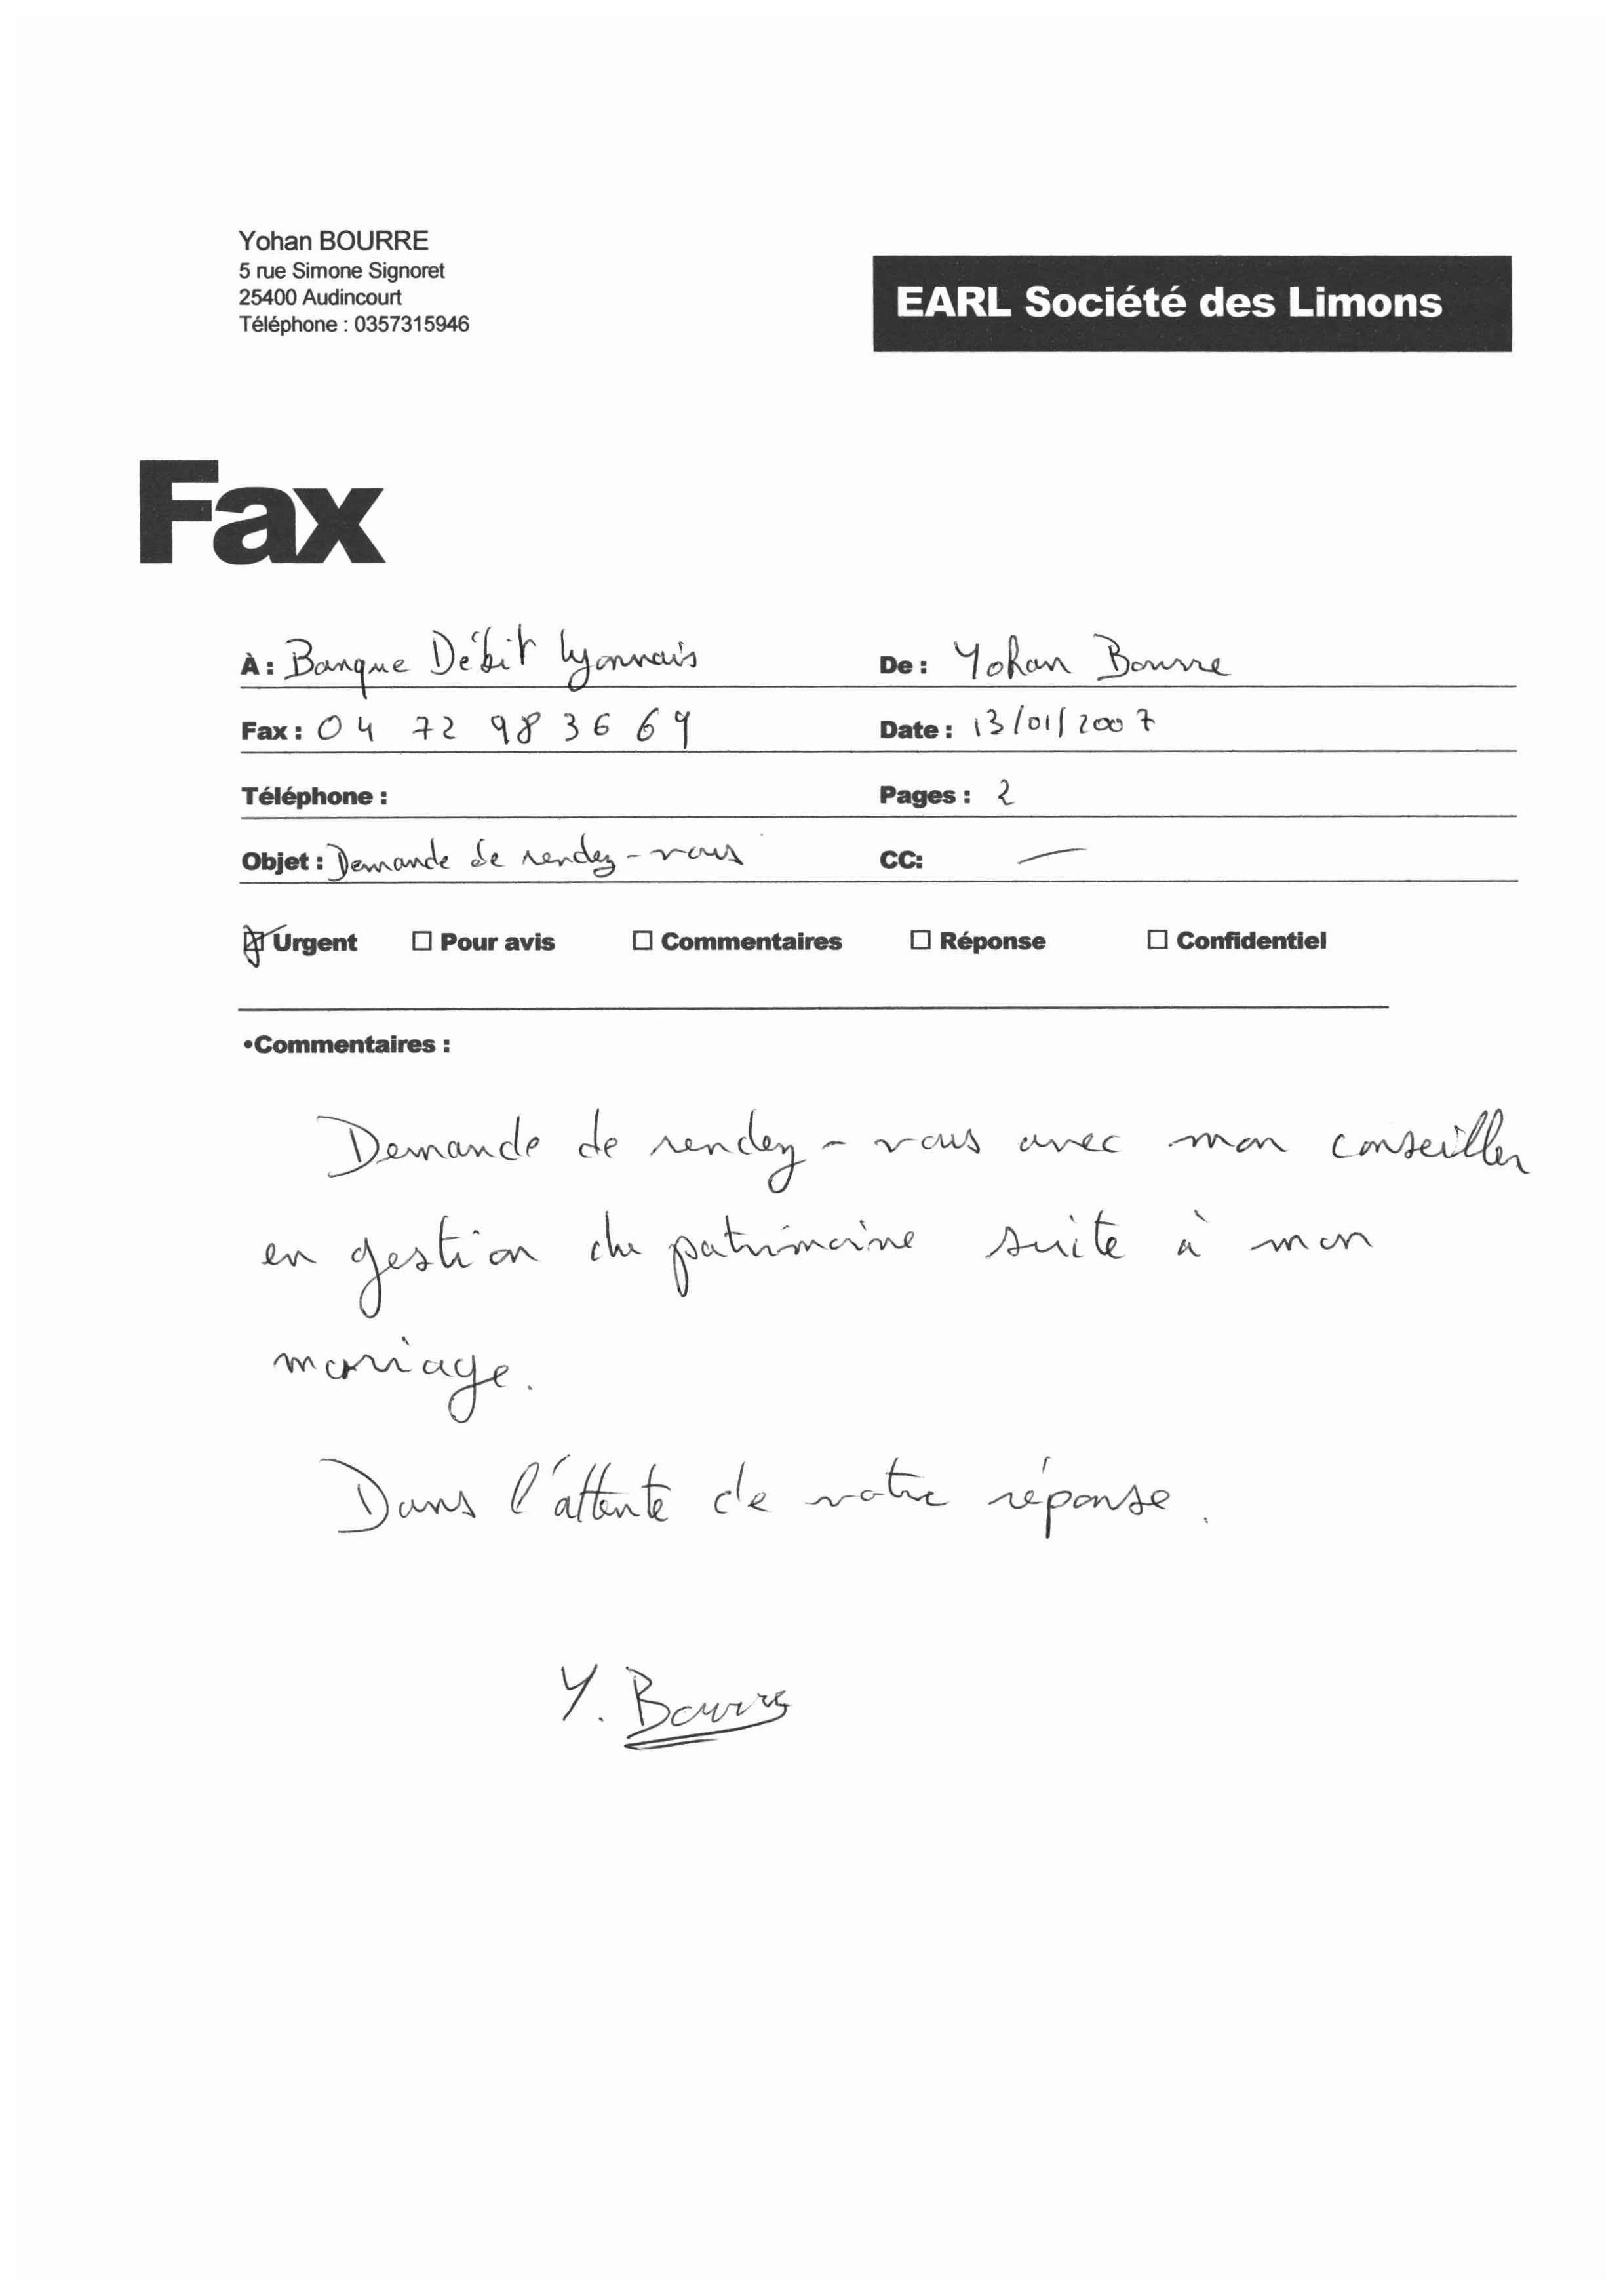 Yohan BOURRE
5 rue Simone Signoret
25400 Audincourt
Téléphone : 0357315946
EARL Société des Limons
Fax
À : Banque Débit Lyonnais
De : Yohan Bourre
Fax : 04 72 98 36 69
Date : 13/01/2007
Téléphone :
Pages : 2
Objet : Demande de rendez-vous
CC: —
Urgent
Pour avis
Commentaires
Réponse
Confidentiel
•Commentaires :
Demande de rendez-vous avec mon conseiller
en gestion du patrimoine suite à mon
mariage.
Dans l'attente de votre réponse.
Y. Bourre